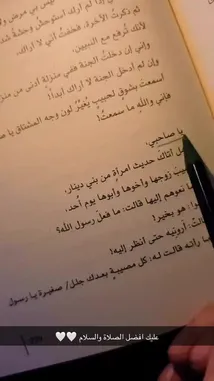 ثم ذكرتُ الآخرة، فخفتُ أني لا أراك،
لأنك تُرفع مع النبيين.
وإني إن دخلتُ الجنة ففي منزلة أدنى من
وإن لم أدخل الجنة لا أراك أبداً!
أسمعتَ بشوقٍ لحبيبٍ يُغيّرُ لون وجه المشتاق
فإني والله ما سمعتُ!
يا صاحبي،
أتاكَ حديث امرأةٍ من بني دينار،
زوجها وأخوها وأبوها يوم أحد،
نعوهم إليها قالت: ما فعل رسول الله؟
هو بخير!
قالت: أرونيه حتى أنظر إليه!
رأته قالت له: كل مصيبةٍ بعدك جلل/ صغيرة يا رسول
عليك افضل الصلاة والسلام 🤍🤍